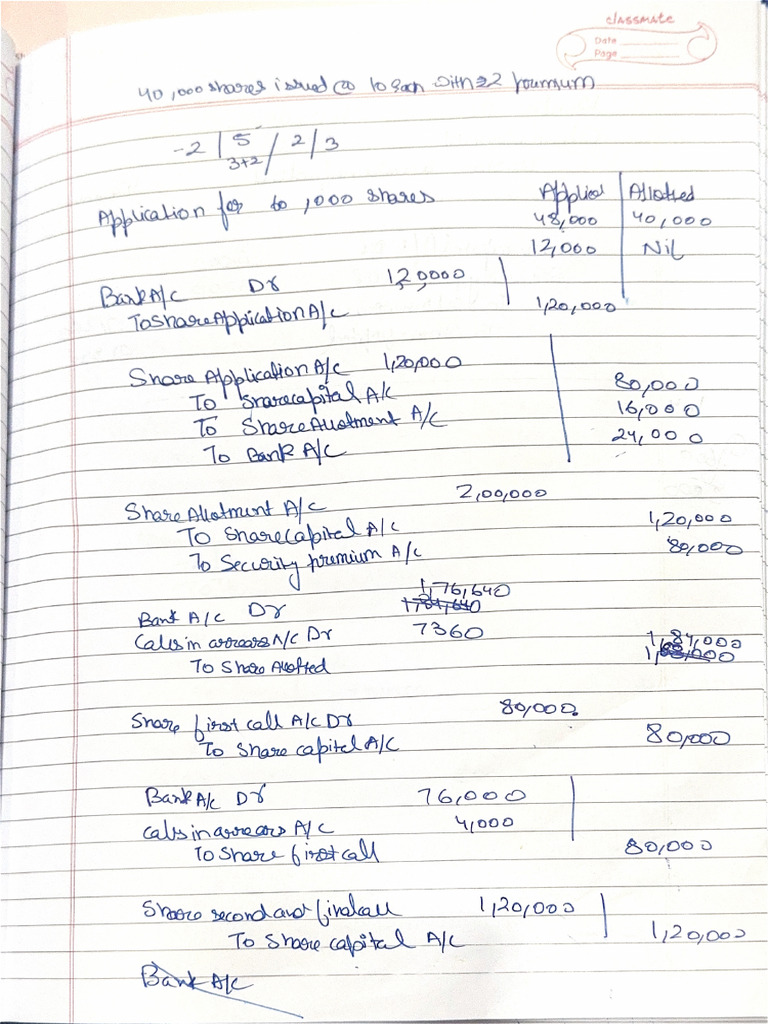 classmate
Date
Page
40,000 shares issued @ 10 each with 22 premium
-2 | 5 / 2 | 3
3+2
Application for 60,000 shares Applied | Allotted
48,000 40,000
12,000 Nil
Bank A/C Dr 120000
To Share Application A/C 1,20,000
Share Application A/C 1,20,000
To Share capital A/C 80,000
To Share Allotment A/C 16,000
To Bank A/C 24,000
Share Allotment A/C 2,00,000
To Share Capital A/C 1,20,000
To Security premium A/C 80,000
1,76,640
Bank A/C Dr
Calls in arrears A/C Dr 7360 1,84,000
To Share Allotted
Share first call A/C Dr 80,000
To Share capital A/C 80,000
Bank A/C Dr 76,000
Calls in arrears A/C 4,000
To Share first call 80,000
Share second and final call 1,20,000
To Share capital A/C 1,20,000
Bank A/C